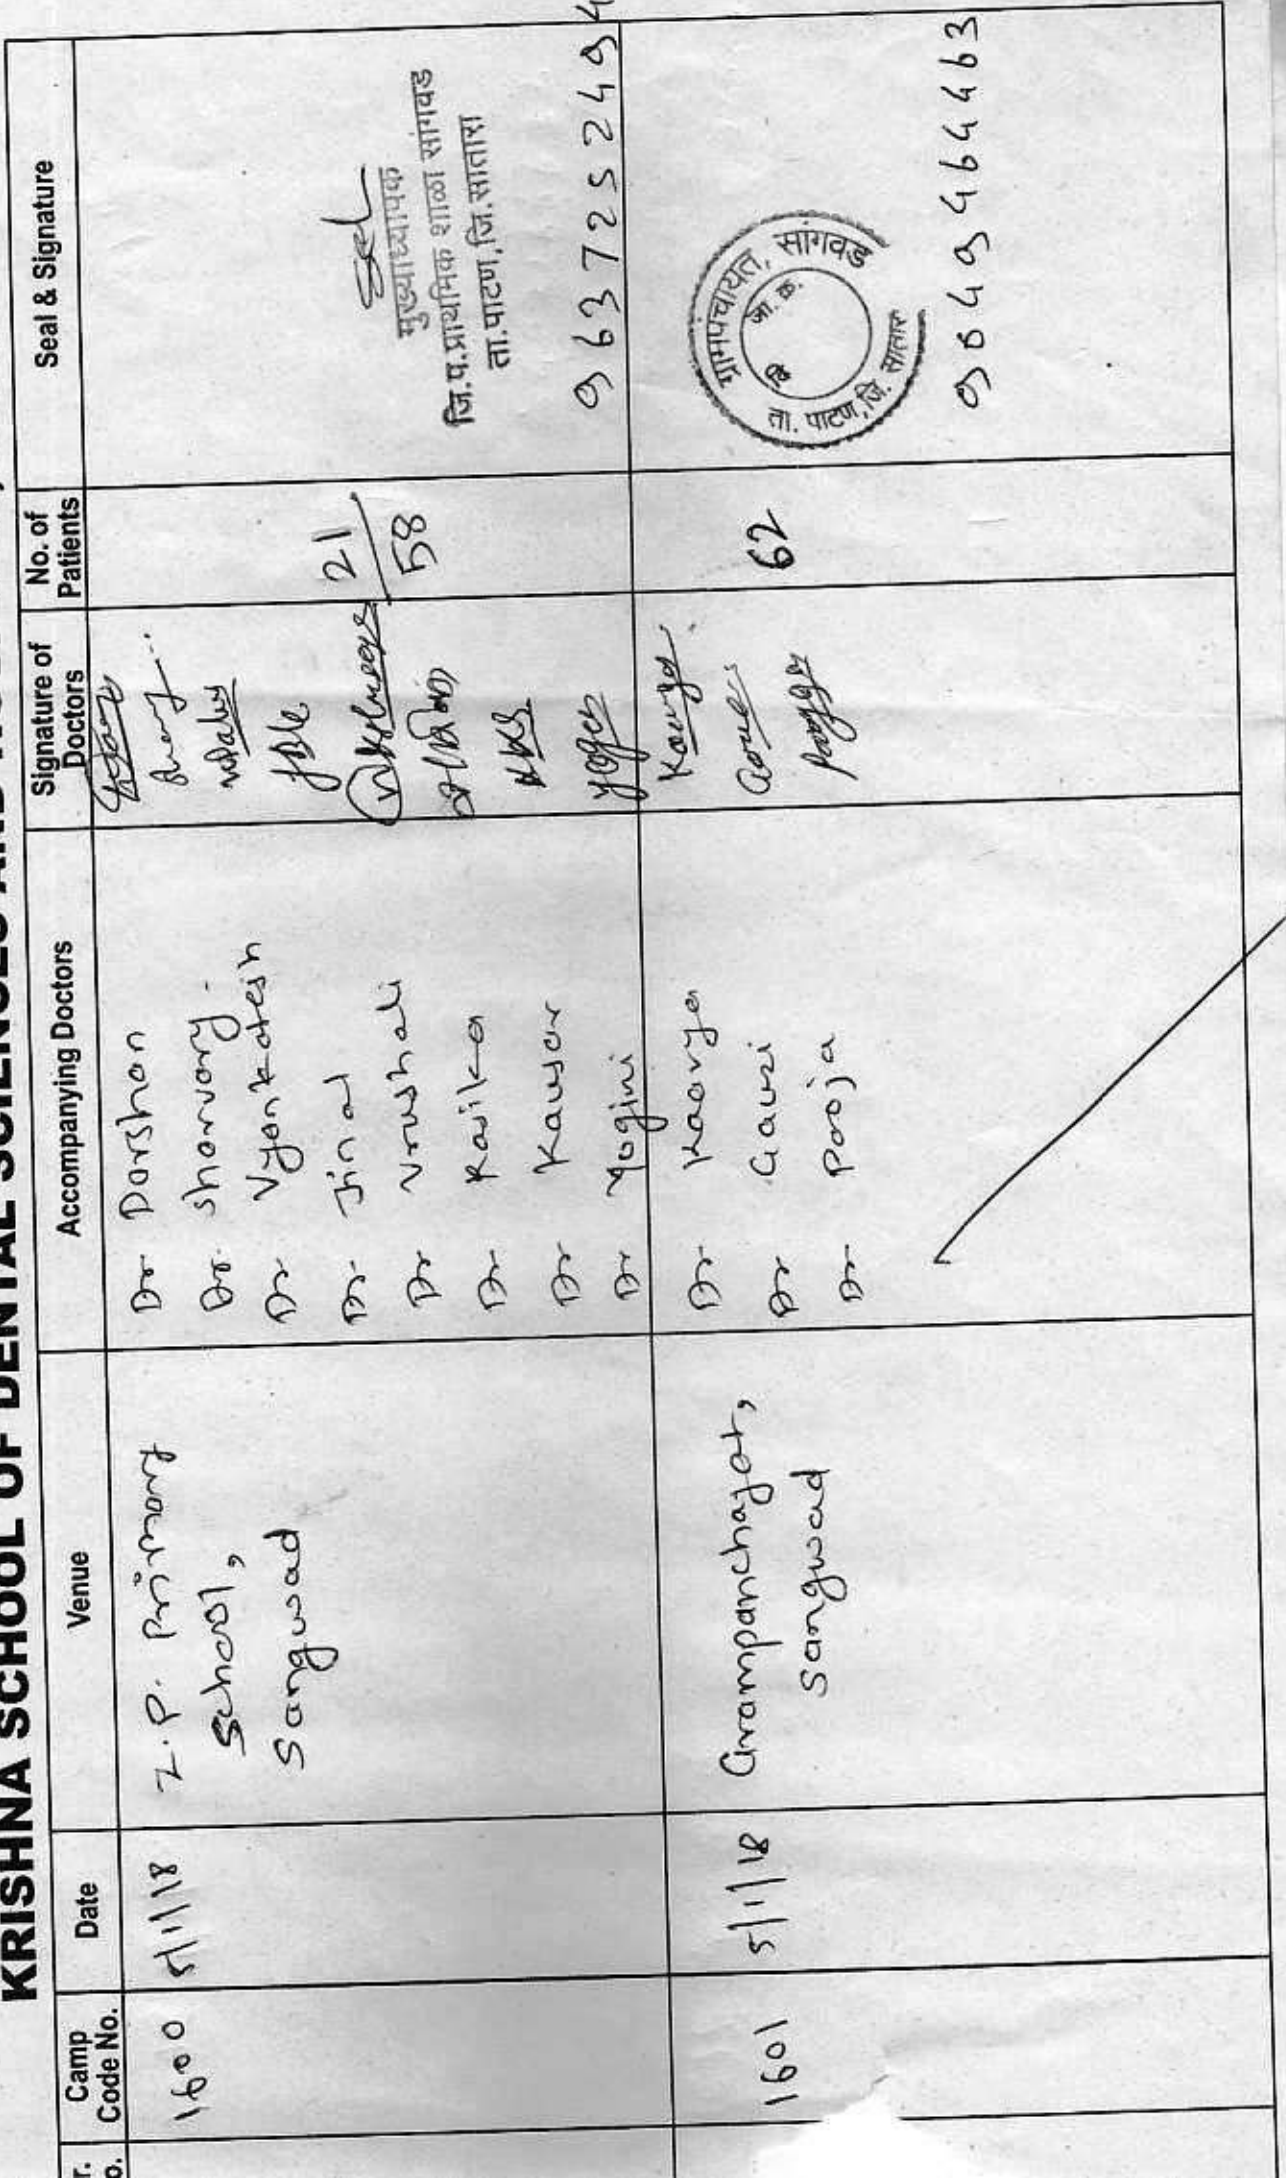 KRISHNA SCHOOL OF DENTAL SCIENCES AND
Camp Code No.
Date
Venue
Accompanying Doctors
Signature of Doctors
No. of Patients
Seal & Signature
1600
5/1/18
Z.P. Primary
School,
Sangwad
Dr Darshan
Dr. Sharvary.
Dr. Vyankatesh
Dr. Jinal
Dr Vrushali
Dr. Rasika
Dr Kausar
Dr Yogini
21
58
मुख्याध्यापक
जि.प.प्राथमिक शाळा सांगवड
ता.पाटण,जि.सातारा
963725249
1601
5/1/18
Grampanchayat,
Sangwad
Dr. Kaorya
Dr Gauri
Dr. Pooja
62
ग्रामपंचायत, सांगवड
जा. क्र.
ता. पाटण, जि. सातारा